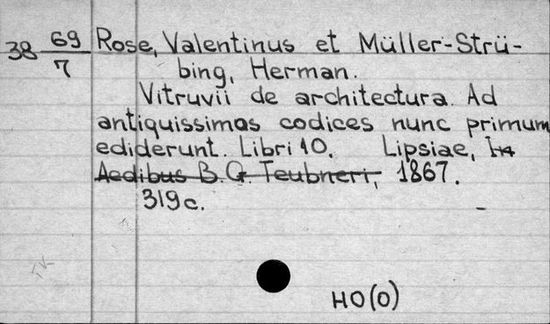 38 69/7 Rose, Valentinus et Müller-Strü-
bing, Herman.
Vitruvii de architectura. Ad
antiquissimos codices nunc primum
ediderunt. Libri 10. Lipsiae, In
Aedibus B. G. Teubneri, 1867.
319 c.
HO(0)